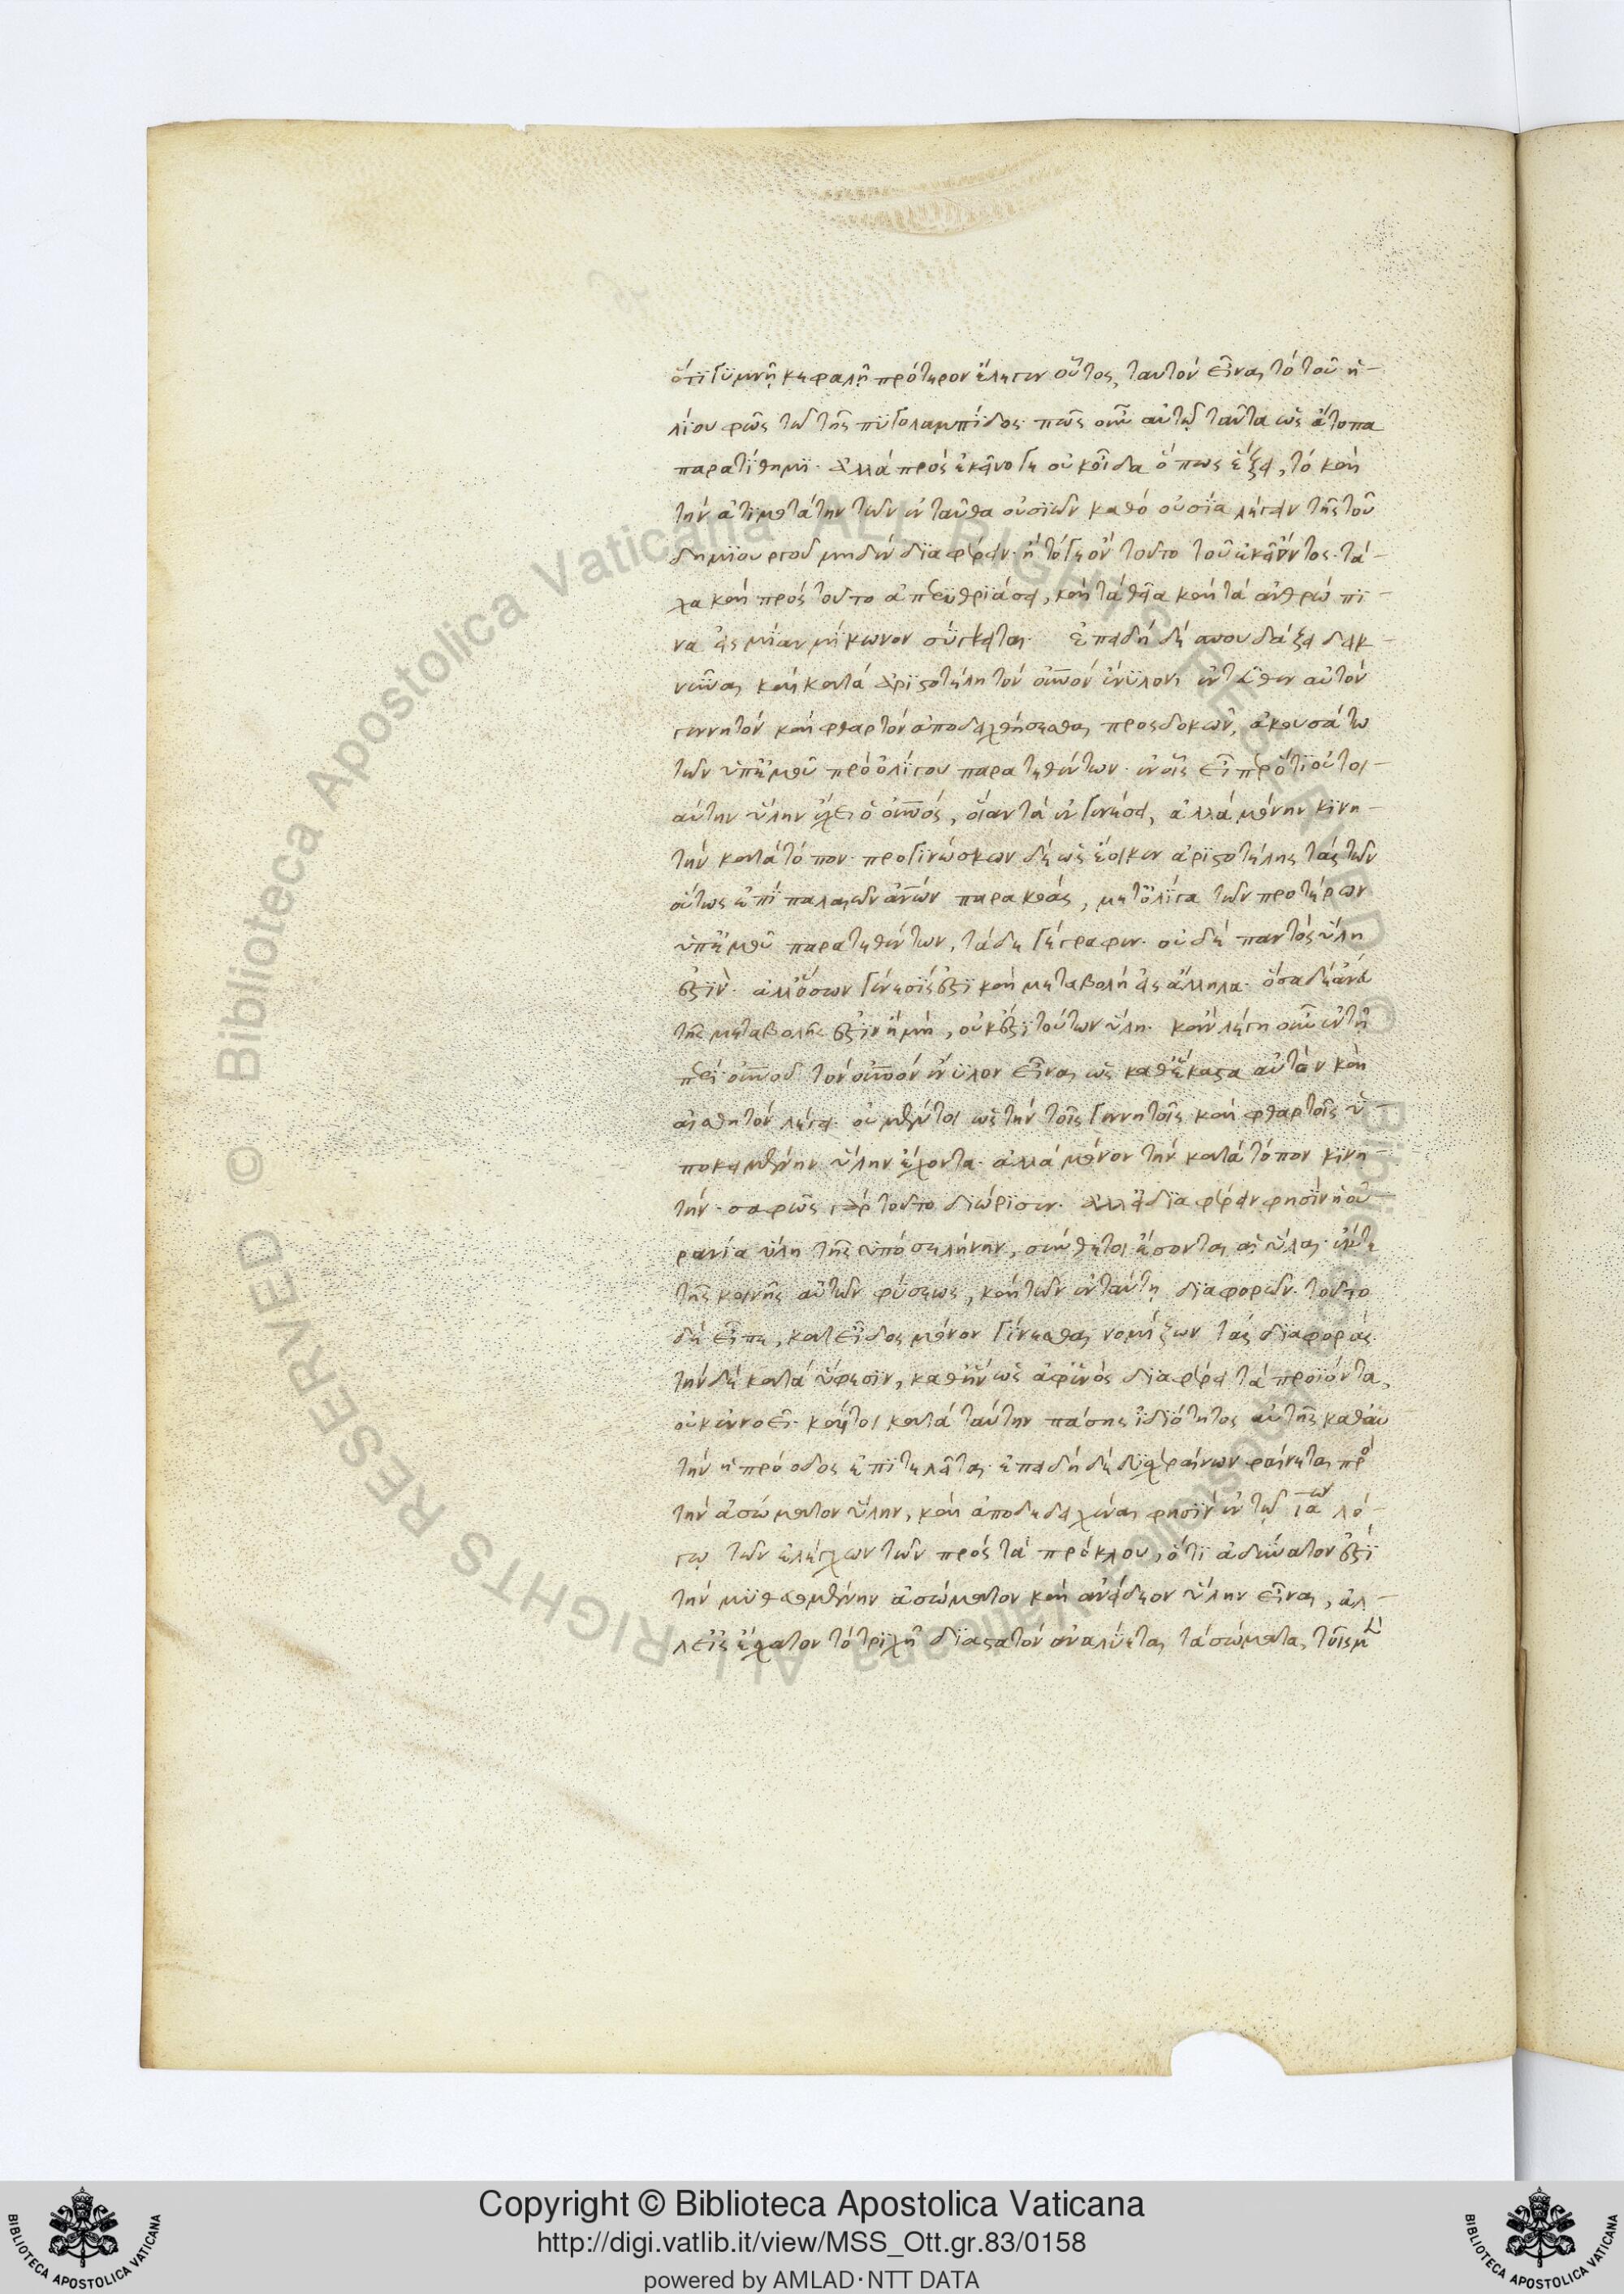 ὅτι γυμνῇ κεφαλῇ πρότερον ἔλεγεν οὗτος, ταυτὸν εἶναι τὸ τοῦ ἡ-
λίου φῶς τῶ τῆς πυγολαμπίδος· πῶς οὖν αὐτῷ ταῦτα ὡς ἄτοπα
παρατίθημι· ἀλλὰ πρὸς ἐκεῖνό γε οὐκ οἶδα ὅπως ἕξει, τὸ καὶ
τὴν ἀτιμοτάτην τῶν ἐνταῦθα οὐσιῶν καθὸ οὐσία λέγειν τῆς τοῦ
δημιουργοῦ μηδὲν διαφέρειν· ἢ τό γε ὂν τοῦτο τοῦ ἐκεῖ ὄντος· τά-
χα καὶ πρὸς τοῦτο ἀπερυθριάσει, καὶ τὰ θεῖα καὶ τὰ ἀνθρώπι-
να εἰς μίαν μύκωνον συγκεῖται· ἐπειδὴ δὲ σπουδάζει δεικ-
νύναι καὶ κατὰ ἀριστοτέλη τὸν οὐνον ἔνυλον, ἐντεῦθεν αὐτὸν
γεννητὸν καὶ φθαρτὸν ἀποδειχθήσεσθαι προσδοκῶν, ἀκουσάτω
τῶν ὑπ' ἐμοῦ πρὸ ὀλίγου παρατεθέντων· ἐν οἷς εἶπεν ὅτι οὐ τοι-
αύτην ὕλην ἔχει ὁ οὐνος, οἵαν τὰ ἐν γενέσει, ἀλλὰ μόνην κινη-
τὴν κατὰ τόπον· προγινώσκων δὲ ὡς ἔοικεν ἀριστοτέλης τὰς τῶν
οὕτως ἐπιπαλαίων ἀνων παρακοάς, μετ' ὀλίγα τῶν προτέρων
ὑπ' ἐμοῦ παρατεθέντων, τάδε γέγραφεν· οὐδὲ παντὸς ὕλη
ἐστὶν· ἀλλ' ὅσων γένεσίς ἐστι καὶ μεταβολὴ εἰς ἄλληλα· ὅσα δὲ ἄνευ
τῆς μεταβολῆς ἐστὶν ἢ μὴ, οὐκ ἔστι τούτων ὕλη· κἂν λέγῃ οὖν ἐν τῇ
περὶ οὐνου τὸν οὐνον ἔνυλον εἶναι, ὡς καθέκαστα αὐτὸν καὶ
αἰσθητὸν λέγει· οὐ μέντοι ὡς τὴν τοῖς γεννητοῖς καὶ φθαρτοῖς ὑ-
ποκειμένην ὕλην ἔχοντα· ἀλλὰ μόνον τὴν κατὰ τόπον κινη-
τήν· σαφῶς γὰρ τοῦτο διώρισεν· ἀλλ' εἰ διαφέρειν φησὶν ἡ οὐ-
ρανία ὕλη τῆς ὑπὸ σελήνην, σύνθετοι ἔσονται αἱ ὕλαι· ἔκ τε
τῆς κοινῆς αὐτῶν φύσεως, καὶ τῶν ἐν ταύτῃ διαφορῶν· τοῦτο
δὲ εἶπε, κατ' εἶδος μόνον γίνεσθαι νομίζων τὰς διαφοράς·
τὴν δὲ κατὰ ὕφεσιν, καθ' ἣν ὡς ἀφ' ἑνὸς διαφέρει τὰ προϊόντα,
οὐκ ἐννοεῖ· καίτοι κατὰ ταύτην πάσης ἰδιότητος αὐτῆς καθ' αὑ-
τὴν ἡ πρόοδος ἐπιτελεῖται· ἐπειδὴ δὲ δυσχεραίνων φαίνεται πρὸς
τὴν ἀσώματον ὕλην, καὶ ἀποδεδειχέναι φησὶν ἐν τῷ ιαω λό-
γῳ τῶν ἐλέγχων τῶν πρὸς τὰ πρόκλου, ὅτι ἀδύνατόν ἐστι
τὴν μυθευομένην ἀσώματον καὶ ἀνείδεον ὕλην εἶναι, ἀλ-
λ' εἰς ἔσχατον τὸ τριχῇ διαστατὸν ἀναλύεται τὰ σώματα, τοῖς μὲν